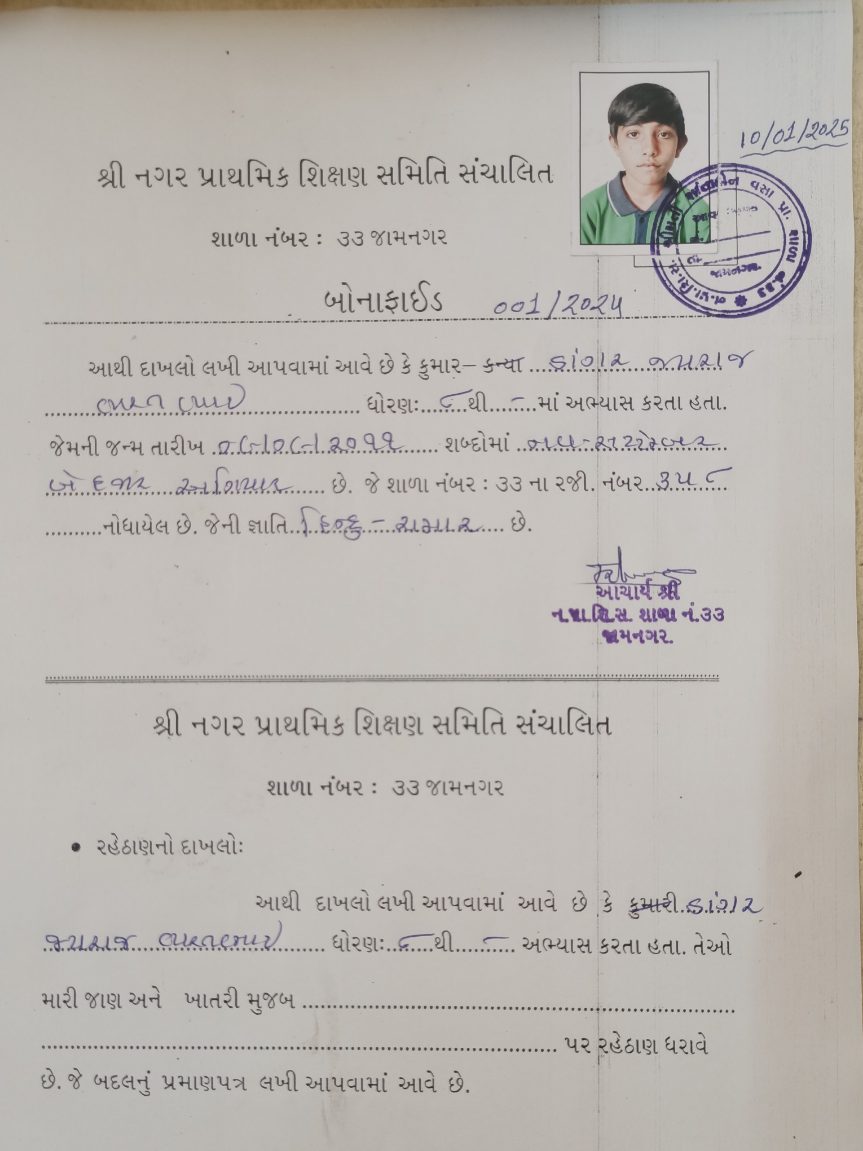 10/01/2025
શ્રી નગર પ્રાથમિક શિક્ષણ સમિતિ સંચાલિત
શાળા નંબર : ૩૩ જામનગર
બોનાફાઈડ 001/2024
આથી દાખલો લખી આપવામાં આવે છે કે કુમાર– કન્યા ડાંગર જયરાજ
ભરતભાઈ ધોરણ: ૮ થી – માં અભ્યાસ કરતા હતા.
જેમની જન્મ તારીખ ૨૦૧૧ શબ્દોમાં નવ-સપ્ટેમ્બર
બે હજાર અગિયાર છે. જે શાળા નંબર : ૩૩ ના રજી. નંબર ૩૫૮
નોધાયેલ છે. જેની જ્ઞાતિ હિન્દુ - છે.
આચાર્ય શ્રી
ન.પ્રા.શિ.સ. શાળા નં.૩૩
જામનગર.
શ્રી નગર પ્રાથમિક શિક્ષણ સમિતિ સંચાલિત
શાળા નંબર : ૩૩ જામનગર
• રહેઠાણનો દાખલો:
આથી દાખલો લખી આપવામાં આવે છે કે કુમારી ડાંગર
જયરાજ ભરતભાઈ ધોરણ: ૮ થી – અભ્યાસ કરતા હતા. તેઓ
મારી જાણ અને ખાતરી મુજબ
પર રહેઠાણ ધરાવે
છે. જે બદલનું પ્રમાણપત્ર લખી આપવામાં આવે છે.